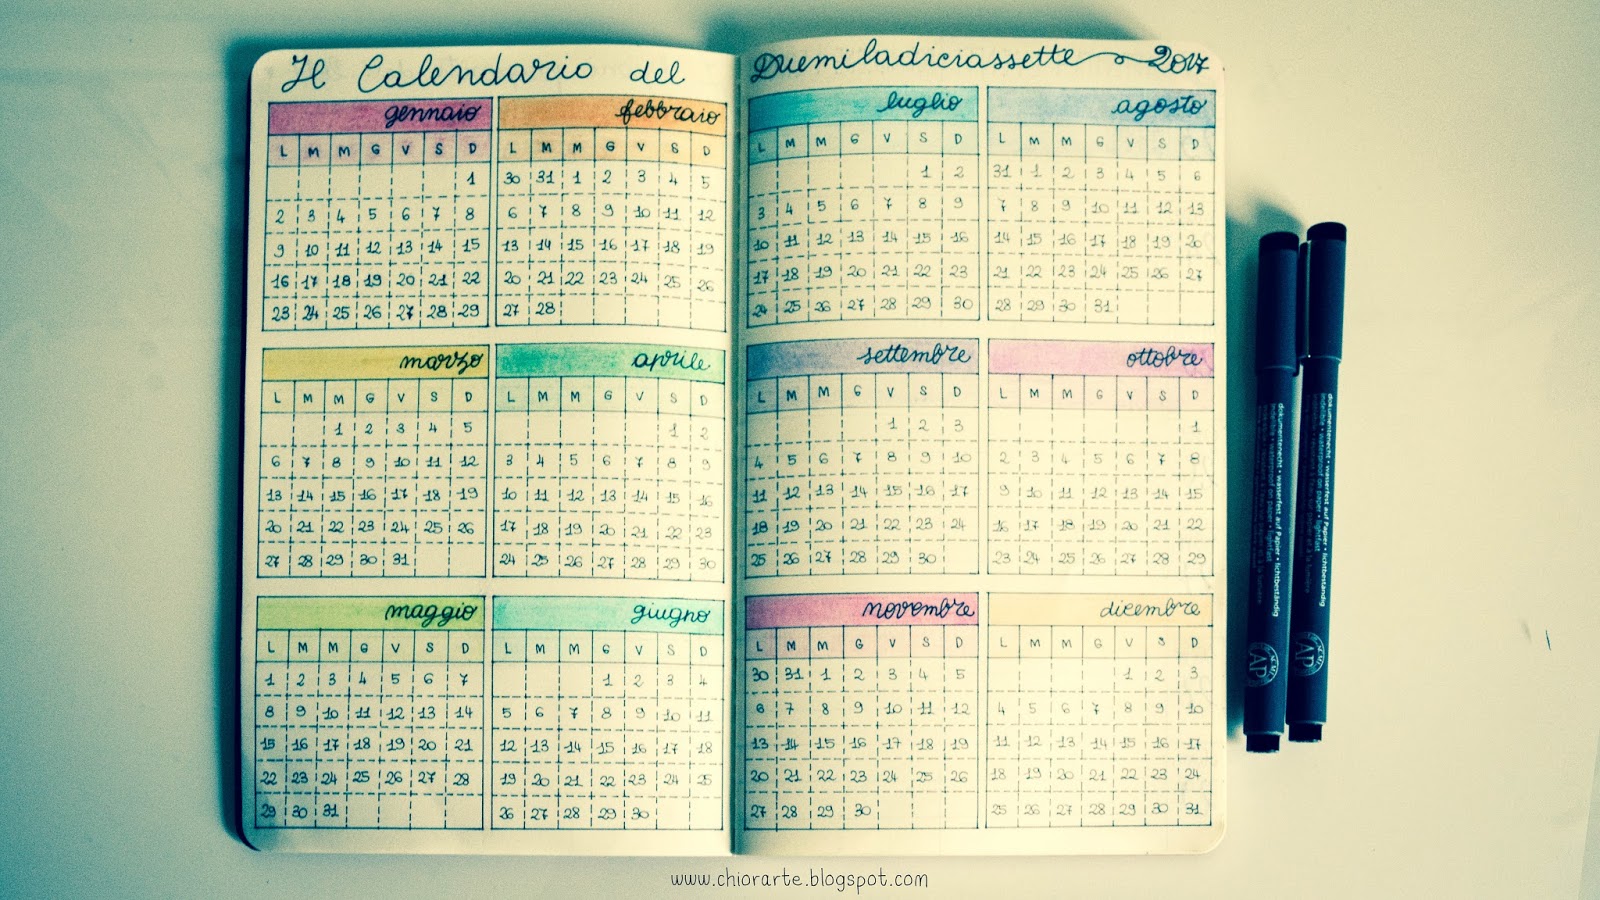 Il Calendario del
gennaio
L M M G V S D
1
2 3 4 5 6 7 8
9 10 11 12 13 14 15
16 17 18 19 20 21 22
23 24 25 26 27 28 29
febbraio
L M M G V S D
30 31 1 2 3 4 5
6 7 8 9 10 11 12
13 14 15 16 17 18 19
20 21 22 23 24 25 26
27 28
marzo
L M M G V S D
1 2 3 4 5
6 7 8 9 10 11 12
13 14 15 16 17 18 19
20 21 22 23 24 25 26
27 28 29 30 31
aprile
L M M G V S D
1 2
3 4 5 6 7 8 9
10 11 12 13 14 15 16
17 18 19 20 21 22 23
24 25 26 27 28 29 30
maggio
L M M G V S D
1 2 3 4 5 6 7
8 9 10 11 12 13 14
15 16 17 18 19 20 21
22 23 24 25 26 27 28
29 30 31
giugno
L M M G V S D
1 2 3 4
5 6 7 8 9 10 11
12 13 14 15 16 17 18
19 20 21 22 23 24 25
26 27 28 29 30
Duemiladiciassette 2017
luglio
L M M G V S D
1 2
3 4 5 6 7 8 9
10 11 12 13 14 15 16
17 18 19 20 21 22 23
24 25 26 27 28 29 30
agosto
L M M G V S D
31 1 2 3 4 5 6
7 8 9 10 11 12 13
14 15 16 17 18 19 20
21 22 23 24 25 26 27
28 29 30 31
settembre
L M M G V S D
1 2 3
4 5 6 7 8 9 10
11 12 13 14 15 16 17
18 19 20 21 22 23 24
25 26 27 28 29 30
ottobre
L M M G V S D
1
2 3 4 5 6 7 8
9 10 11 12 13 14 15
16 17 18 19 20 21 22
23 24 25 26 27 28 29
novembre
L M M G V S D
30 31 1 2 3 4 5
6 7 8 9 10 11 12
13 14 15 16 17 18 19
20 21 22 23 24 25 26
27 28 29 30
dicembre
L M M G V S D
1 2 3
4 5 6 7 8 9 10
11 12 13 14 15 16 17
18 19 20 21 22 23 24
25 26 27 28 29 30 31
dokumentenecht • wasserfest auf Papier • lichtbeständig
indelible • waterproof on paper • lightfast
AP
dokumentenecht • wasserfest auf Papier • lichtbeständig
indelible • waterproof on paper • lightfast
AP
www.chiorarte.blogspot.com